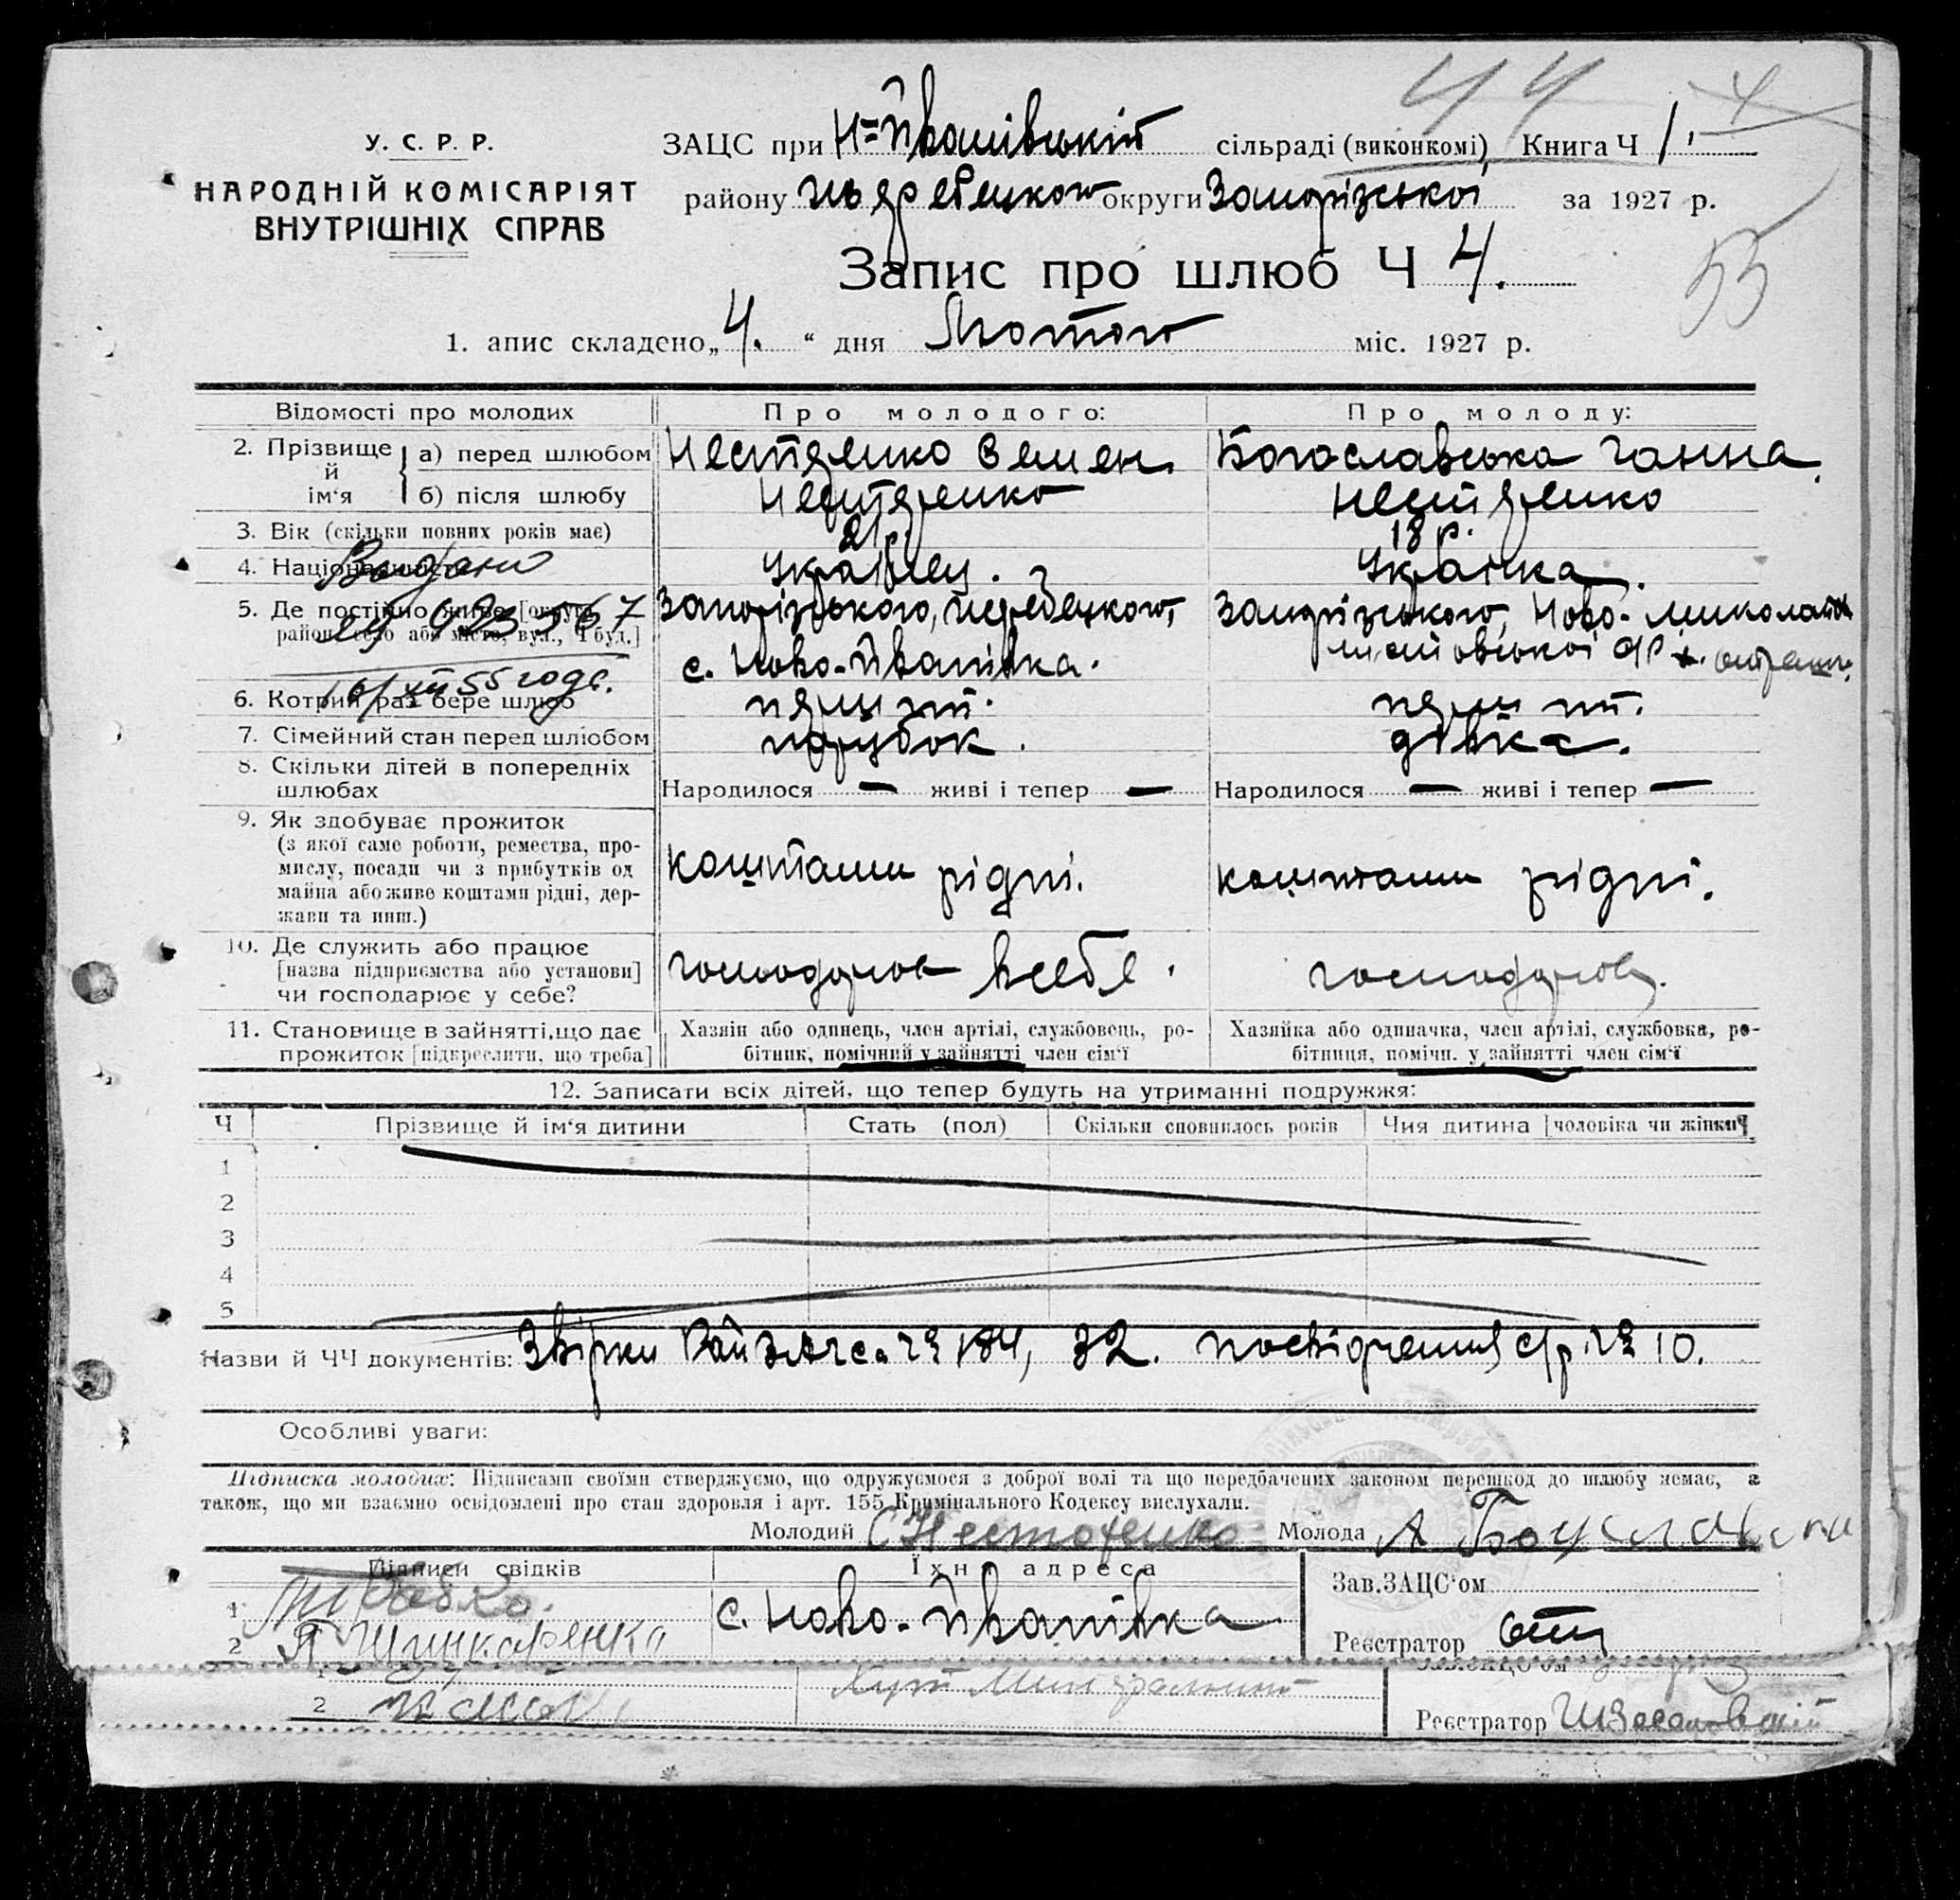 44
У. С. Р. Р.
НАРОДНІЙ КОМІСАРІЯТ
ВНУТРІШНІХ СПРАВ
ЗАЦС при Н=Йванівській сільраді (виконкомі) Книга Ч 1.
району округи Запорізької за 1927 р.
Запис про шлюб Ч 4.
53
1. апис складено „ 4. “ дня Лютого міс. 1927 р.
Відомості про молодих
Про молодого:
Про молоду:
2. Прізвище й ім‘я
а) перед шлюбом
Нестеренко Семен.
Богославська Ганна.
б) після шлюбу
Нестеренко
Нестеренко
3. Вік (скільки повних років має)
21 р.
18 р.
4. Національність
Українец.
Українка.
Видано
5. Де постійно живе [округа, район, село або місто, вул., Ч буд.]
Запорізького,
с. Ново-Йванівка.
Запорізького, Ново-миколаївск
923567
55 года.
6. Котрий раз бере шлюб
перший.
перший.
7. Сімейний стан перед шлюбом
парубок.
дівка.
8. Скільки дітей в попередніх шлюбах
Народилося — живі і тепер —
Народилося — живі і тепер —
9. Як здобуває прожиток
(з якої саме роботи, ремества, про-
мислу, посади чи з прибутків од
майна або живе коштами рідні, дер-
жави та инш.)
коштами рідні.
коштами рідні.
10. Де служить або працює
[назва підприємства або установи]
чи господарює у себе?
господарює всебе.
11. Становище в зайнятті, що дає
прожиток [підкреслити, що треба]
Хазяін або одинець, член артілі, службовець, ро-
бітник, помічний у зайнятті член сім‘ї
Хазяйка або одиначка, член артілі, службовка, ро-
бітниця, помічн. у зайнятті член сім‘ї
12. Записати всіх дітей, що тепер будуть на утриманні подружжя:
Ч Прізвище й ім‘я дитини Стать (пол) Скільки сповнилось років Чия дитина [чоловіка чи жінки]
1
2
3
4
5
Назви й ЧЧ документів: 32. посвідчення с/р. № 10.
Особливі уваги:
Підписка молодих: Підписами своїми стверджуємо, що одружуємося з доброї волі та що передбачених законом перешкод до шлюбу немає, а
також, що ми взаємно освідомлені про стан здоровля і арт. 155 Кримінального Кодексу вислухали.
Молодий С Нестеренко Молода А
Підписи свідків
Їхня адреса
Зав.ЗАЦС‘ом
1
2 Шинкаренко
с. Ново-Йванівка
Реєстратор
2
Хут
Реєстратор